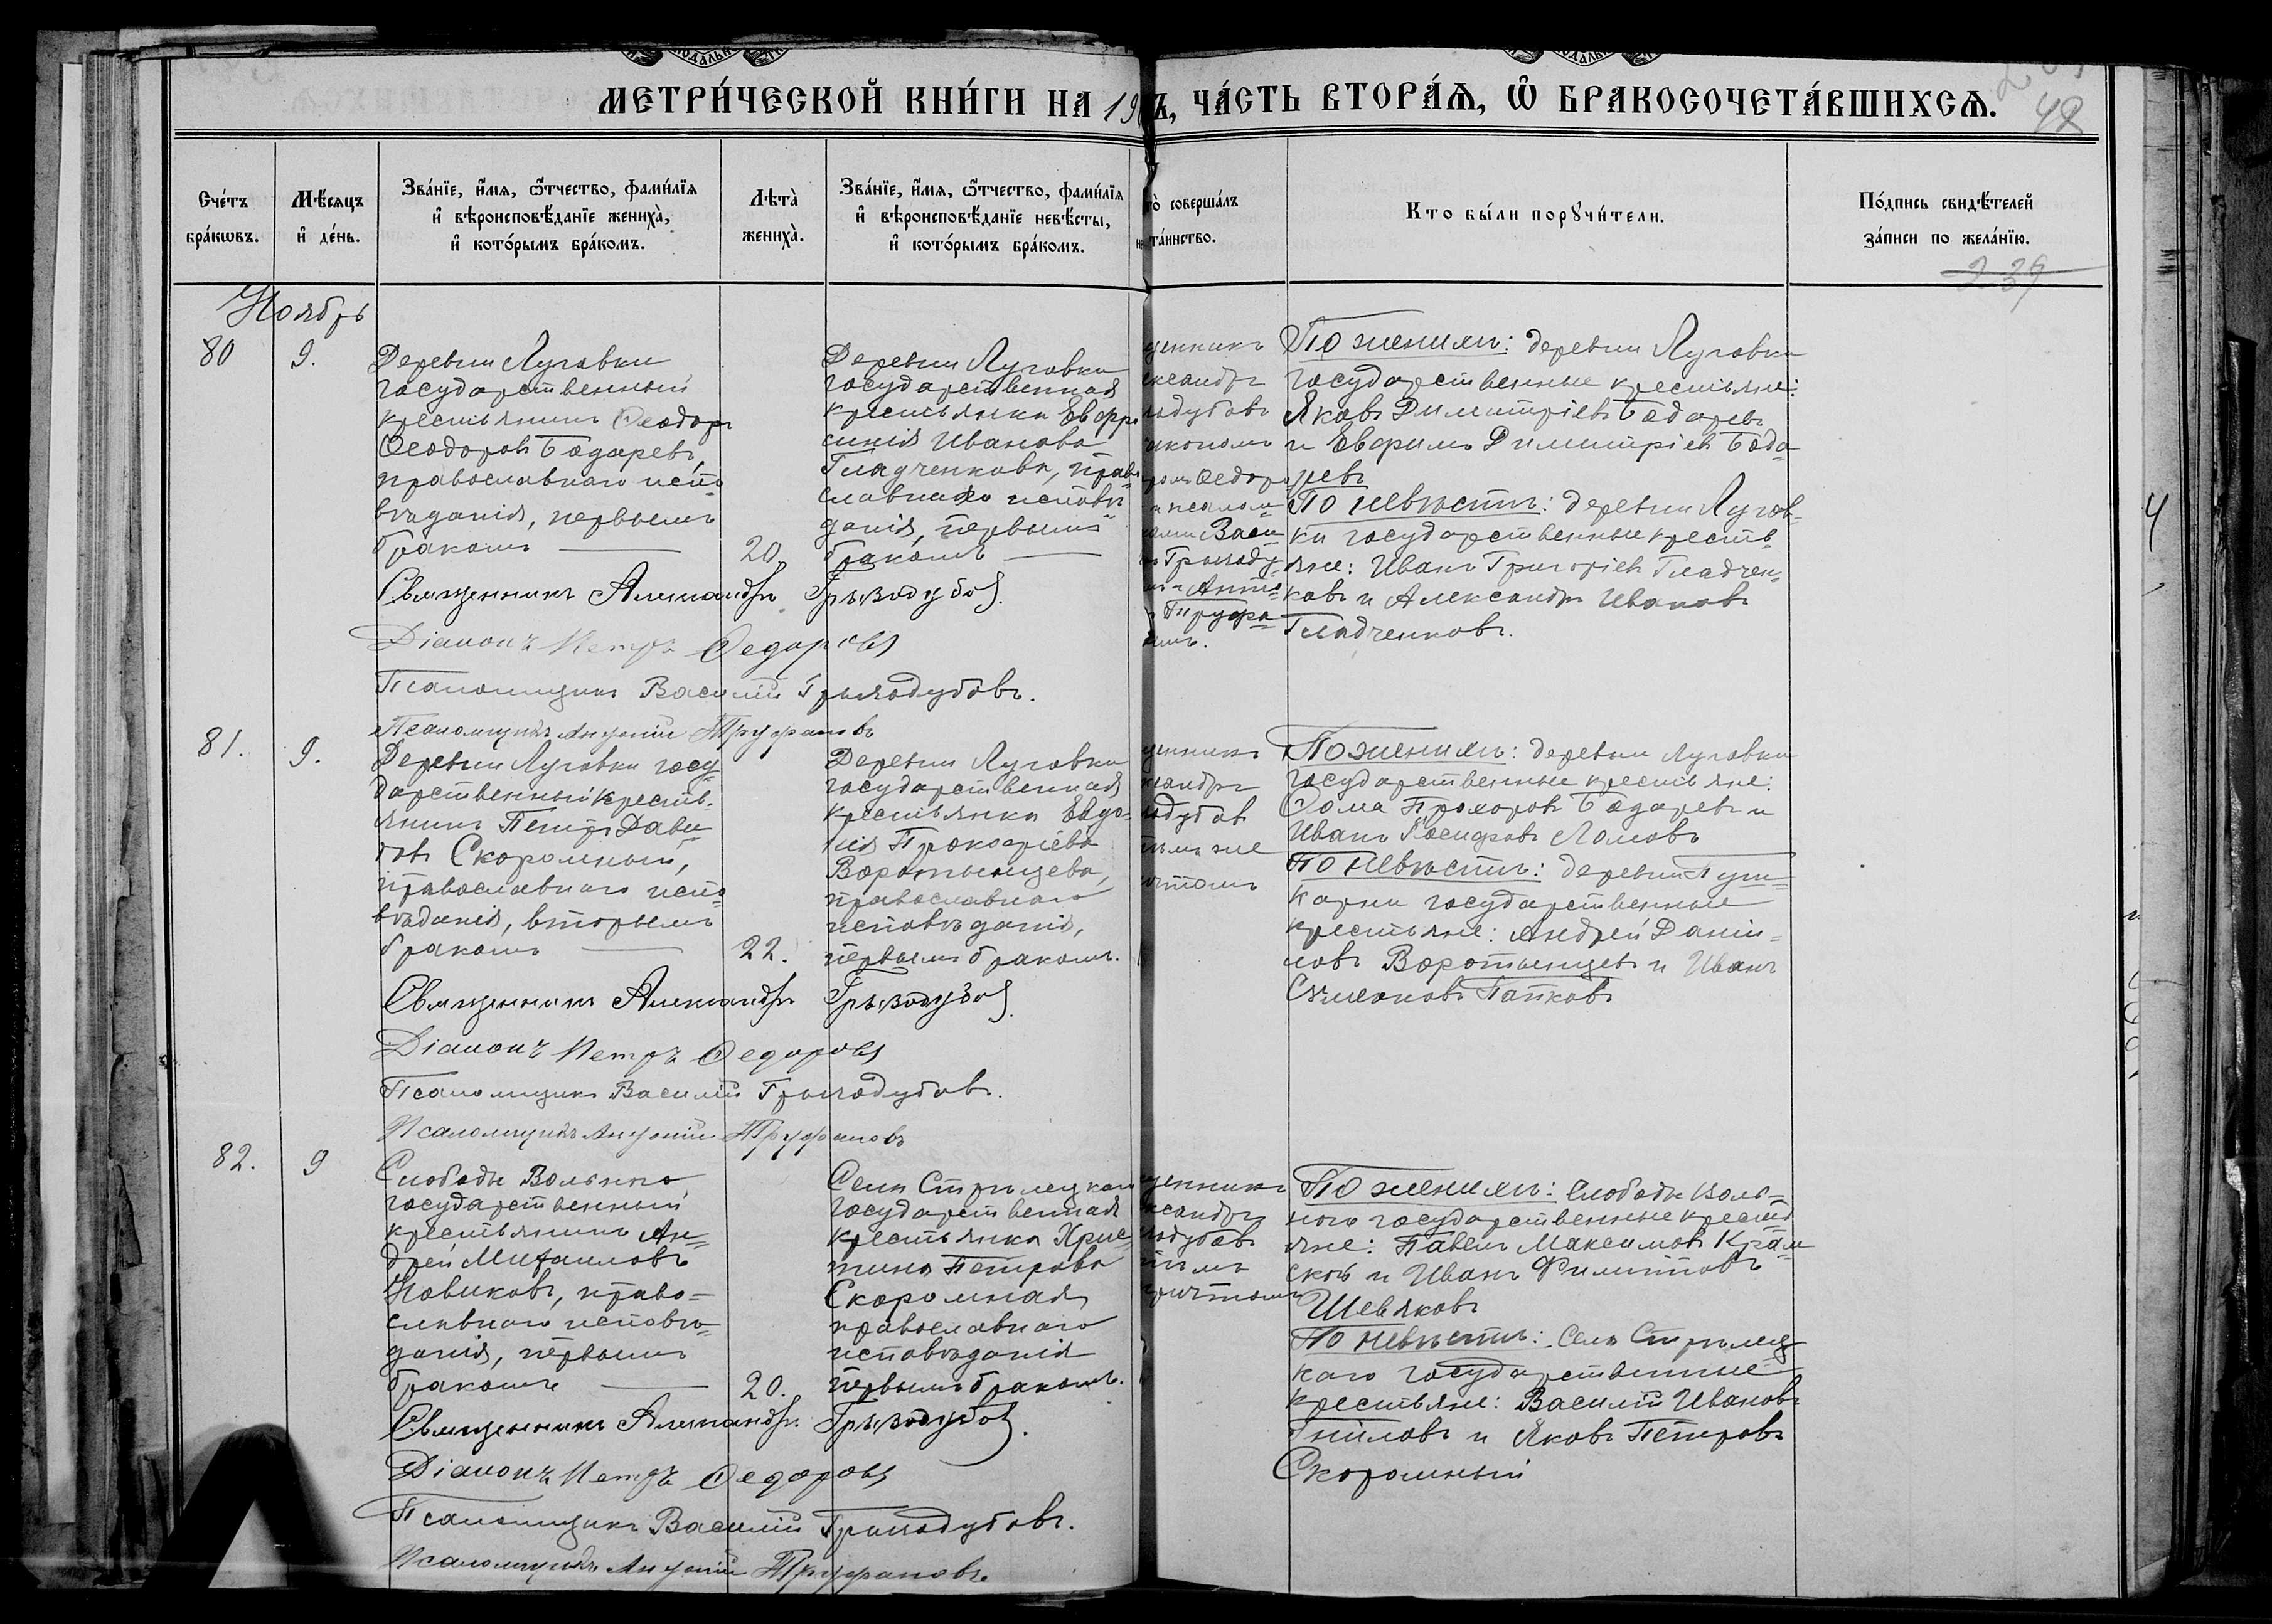 МЕТРИ́ЧЕСКОЙ КНИ́ГИ НА 19
Ъ, ЧА́СТЬ ВТОРА́Ѧ, Ѽ БРАКОСОЧЕТА́ВШИХСѦ.
48
Сче́тъ бра́кѡвъ.
Мѣ́сяцъ и҆ де́нь.
Зва́нїе, и҆́мя, ѻ҆́тчество, фами́лїя
и҆ вѣроисповѣ́данїе жениха̀,
и҆ кото́рымъ бра́комъ.
Лѣта̀ жениха̀.
Зва́нїе, и҆́мя, ѻ҆́тчество, фами́лїя
и҆ вѣроисповѣ́данїе невѣ́сты,
и҆ кото́рымъ бра́комъ.
то̀ соверша́лъ
та́инство.
Кто бы́ли порꙋчи́тели.
По́дпись свидѣ́телей
за́писи по жела́нїю.
239
Ноябрь
80
9.
Деревни Луговки
государственный
крестьянинъ Ѳеодоръ
Ѳеодоровъ Бодаревъ,
православнаго испо-
вѣданія, первымъ
бракомъ
20.
Деревни Луговки
государственная
крестьянка Евфро
синія Иванова
Гладченкова, право
славнаго исповѣ-
данія, первымъ
бракомъ
щенникъ
ександръ
зодубовъ
іакономъ
ромъ Ѳедоро
и псалом-
ками Васи-
Грызоду-
и Анто-
Труфа-
ымъ.
По женихѣ: деревни Луговки
государственные крестьяне:
Яковъ Димитріевъ Бодаревъ
и Евфимъ Димитріевъ Бода-
ревъ
По невѣстѣ: деревни Лугов-
ки государственные кресть-
яне: Иванъ Григоріевъ Гладчен-
ковъ и Александръ Ивановъ
Гладченковъ.
Священникъ Александръ Грызодубовъ.
Діаконъ Петръ Ѳедоровъ
Псаломщикъ Василій Грызодубовъ.
Псаломщикъ Антоній Труфановъ
81.
9.
Деревни Луговки госу-
дарственный кресть-
янинъ Петръ Дави-
довъ Скоромный,
православнаго испо-
вѣданія, вторымъ
бракомъ
22.
Деревни Луговки
государственная
крестьянка Евдо-
кія Прокофіева
Воротынцева,
православнаго
исповѣданія,
первымъ бракомъ.
щенникъ
ксандръ
зодубовъ
тѣмъ же
чтомъ
По женихѣ: деревни Луговки
государственные крестьяне:
Ѳома Прохоровъ Бодаревъ и
Иванъ Іосифовъ Ломовъ
По невѣстѣ: деревни Пуш-
карни государственные
крестьяне: Андрей Дани-
ловъ Воротынцевъ и Иванъ
Симеоновъ Папковъ
Священникъ Александръ Грызодубовъ.
Діаконъ Петръ Ѳедоровъ
Псаломщикъ Василій Грызодубовъ.
Псаломщикъ Антоній Труфановъ
82.
9
Слободы Вольнаго
государственный
крестьянинъ Ан-
дрей Михаиловъ
Новиковъ, право-
славнаго исповѣ-
данія, первымъ
бракомъ
20.
Села Стрѣлецкаго
государственная
крестьянка Хрис-
тина Петрова
Скоромная
православнаго
исповѣданія
первымъ бракомъ.
щенникъ
ксандръ
зодубовъ
тѣмъ
причтомъ
По женихѣ: слободы Воль-
наго государственные кресть
яне: Павелъ Максимовъ
и Иванъ Филиповъ
Шевяковъ
По невѣстѣ: Села Стрѣлец
каго государственные
крестьяне: Василій Ивановъ
Гниловъ и Яковъ Петровъ
Скоромный
Священникъ Александръ Грызодубовъ.
Діаконъ Петръ Ѳедоровъ
Псаломщикъ Василій Грызодубовъ.
Псаломщикъ Антоній Труфановъ